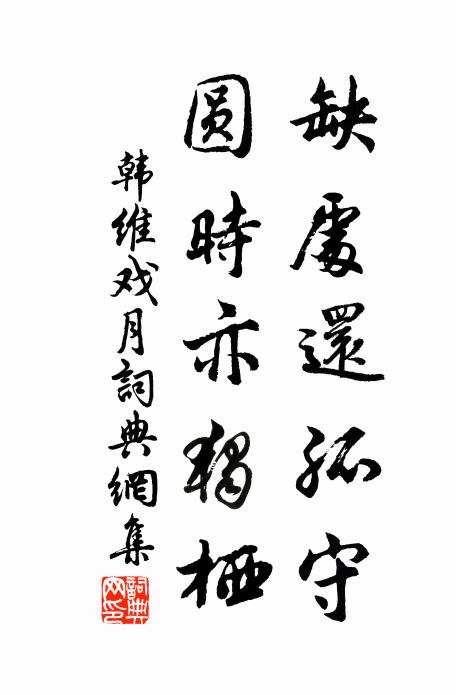 缺處還孤守
圓時亦獨栖
韩維戏月詞典網集
詞典网印